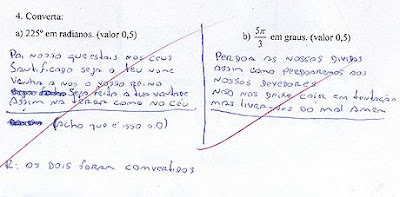 4. Converta:
a) 225° em radianos. (valor 0,5)
Pai nosso que estais nos ceus
Santificado seja o teu nome
Venha a nos o vosso reino
Seja feita a tua vontade
Assim na terra como no céu
(Acho que é isso o.O)
b) 5π/3 em graus. (valor 0,5)
Perdoa as nossas dividas
assim como perdoaremos aos
nossos devedores
não nos deixe cair em tentação
mas livrai-nos do mal amen
R: os dois foram convertidos